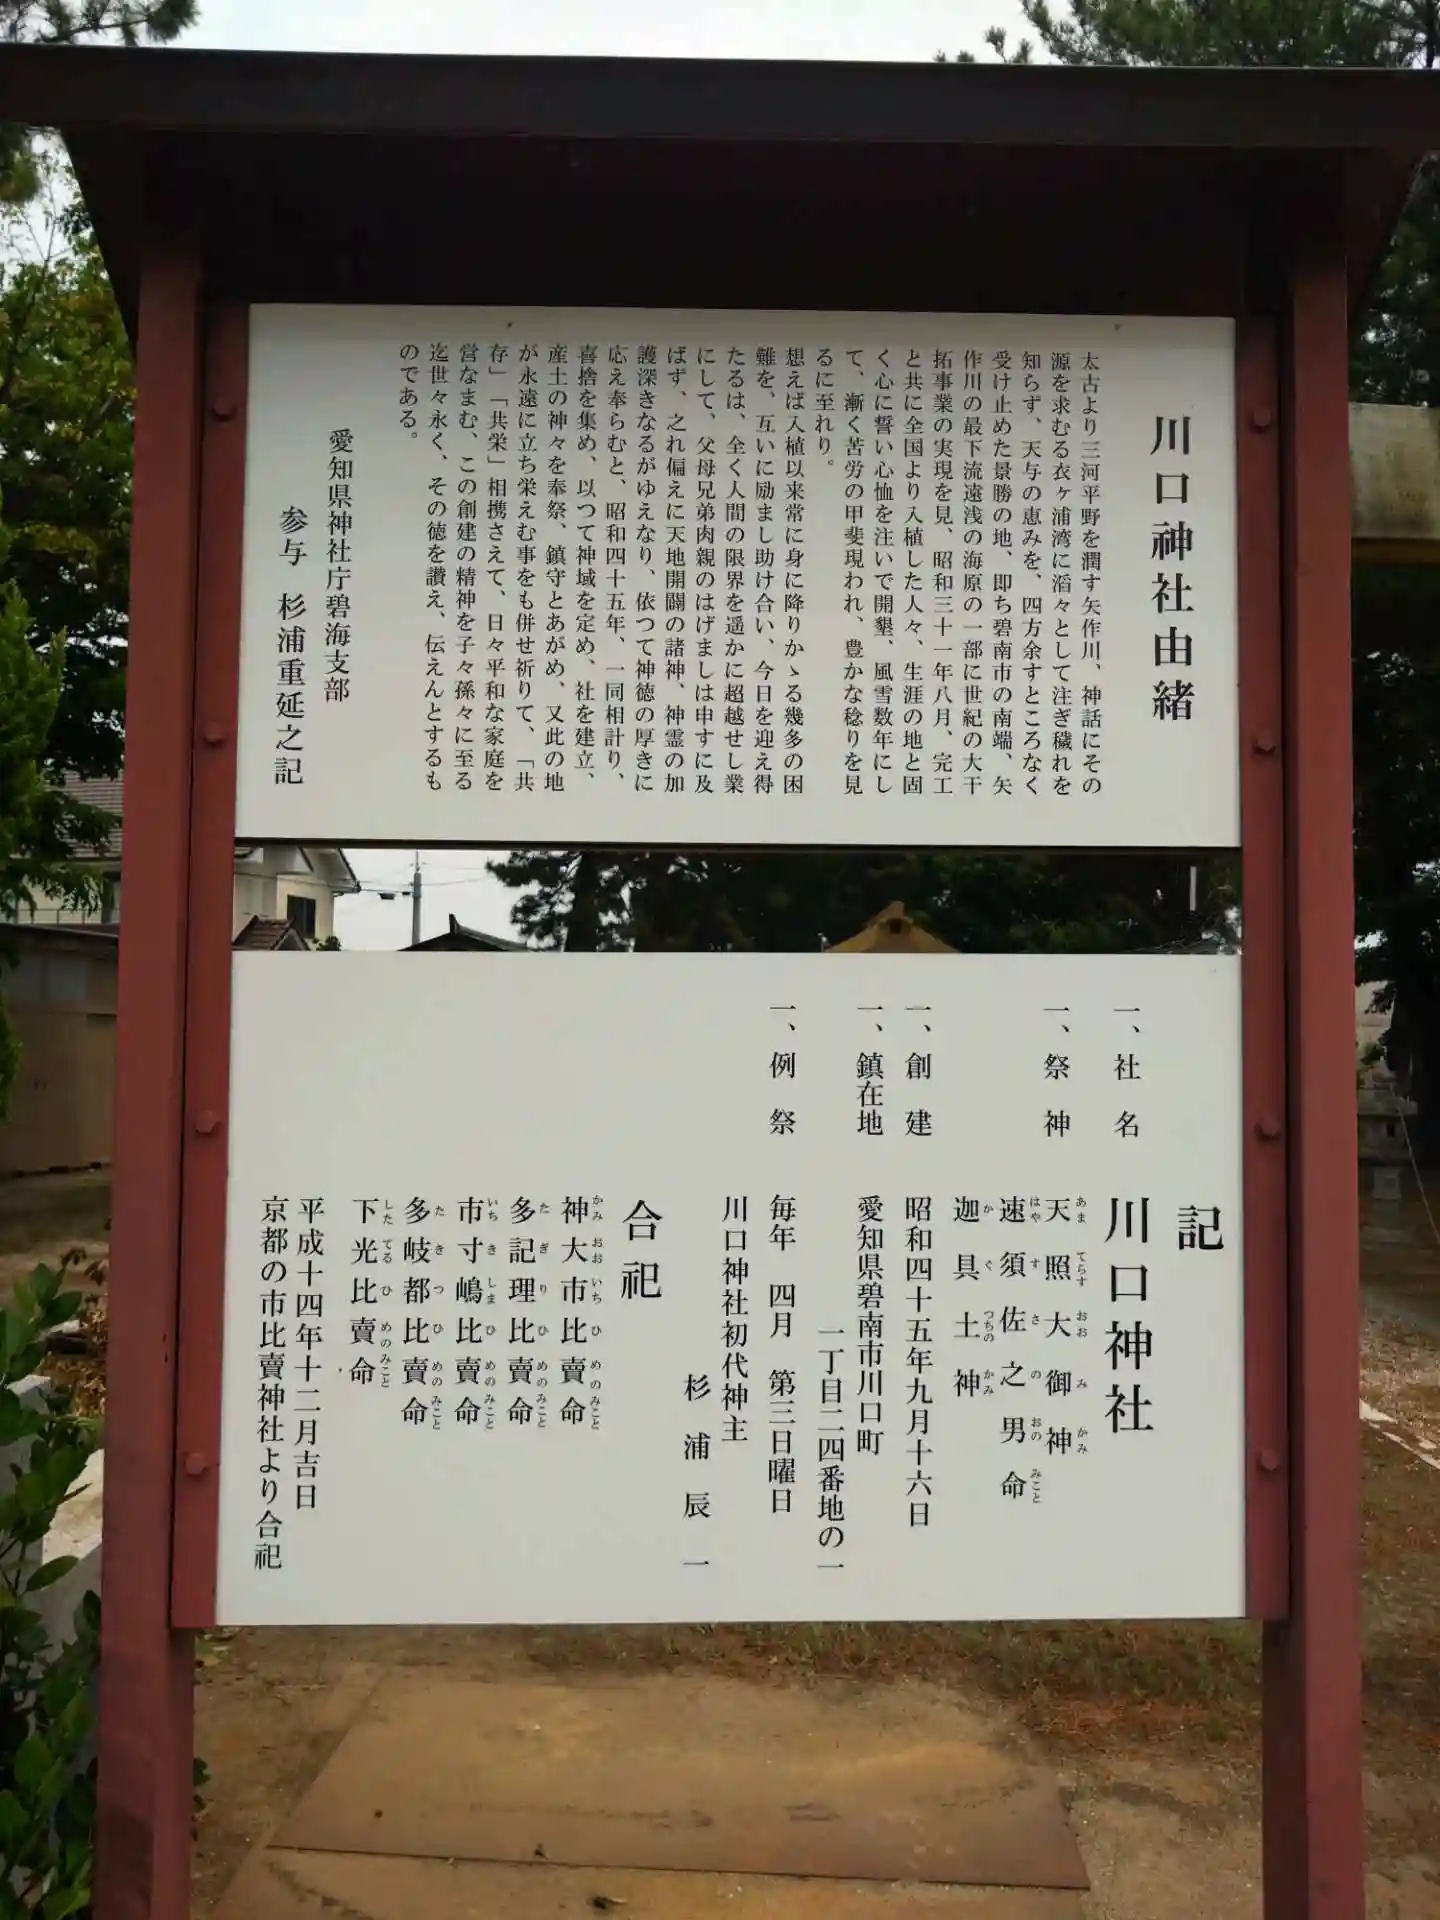 川口神社由緒
太古より三河平野を潤す矢作川、神話にその
源を求むる衣ヶ浦湾に滔々として注ぎ穢れを
知らず、天与の恵みを、四方余すところなく
受け止めた景勝の地、即ち碧南市の南端、矢
作川の最下流遠浅の海原の一部に世紀の大干
拓事業の実現を見、昭和三十一年八月、完工
と共に全国より入植した人々、生涯の地と固
く心に誓い心恤を注いで開墾、風雪数年にし
て、漸く苦労の甲斐現われ、豊かな稔りを見
るに至れり。
想えば入植以来常に身に降りかゝる幾多の困
難を、互いに励まし助け合い、今日を迎え得
たるは、全く人間の限界を遥かに超越せし業
にして、父母兄弟肉親のはげましは申すに及
ばず、之れ偏えに天地開闢の諸神、神霊の加
護深きなるがゆえなり、依つて神徳の厚きに
応え奉らむと、昭和四十五年、一同相計り、
喜捨を集め、以つて神域を定め、社を建立、
産土の神々を奉祭、鎮守とあがめ、又此の地
が永遠に立ち栄えむ事をも併せ祈りて、「共
存」「共栄」相携さえて、日々平和な家庭を
営なまむ、この創建の精神を子々孫々に至る
迄世々永く、その徳を讃え、伝えんとするも
のである。
愛知県神社庁碧海支部
参与 杉浦重延之記
記
一、社名 川口神社
一、祭神 天照大御神
あま てらす おお み かみ
速須佐之男命
はや す さ の おの みこと
迦具土神
か ぐ つちの かみ
一、創建 昭和四十五年九月十六日
一、鎮在地 愛知県碧南市川口町
一丁目二四番地の一
一、例祭 毎年 四月 第三日曜日
川口神社初代神主
杉浦辰一
合祀
神大市比賣命
かみ おお いち ひ めのみこと
多記理比賣命
た ぎ り ひ めのみこと
市寸嶋比賣命
いち き しま ひ めのみこと
多岐都比賣命
た き つ ひ めのみこと
下光比賣命
した てる ひ めのみこと
平成十四年十二月吉日
京都の市比賣神社より合祀